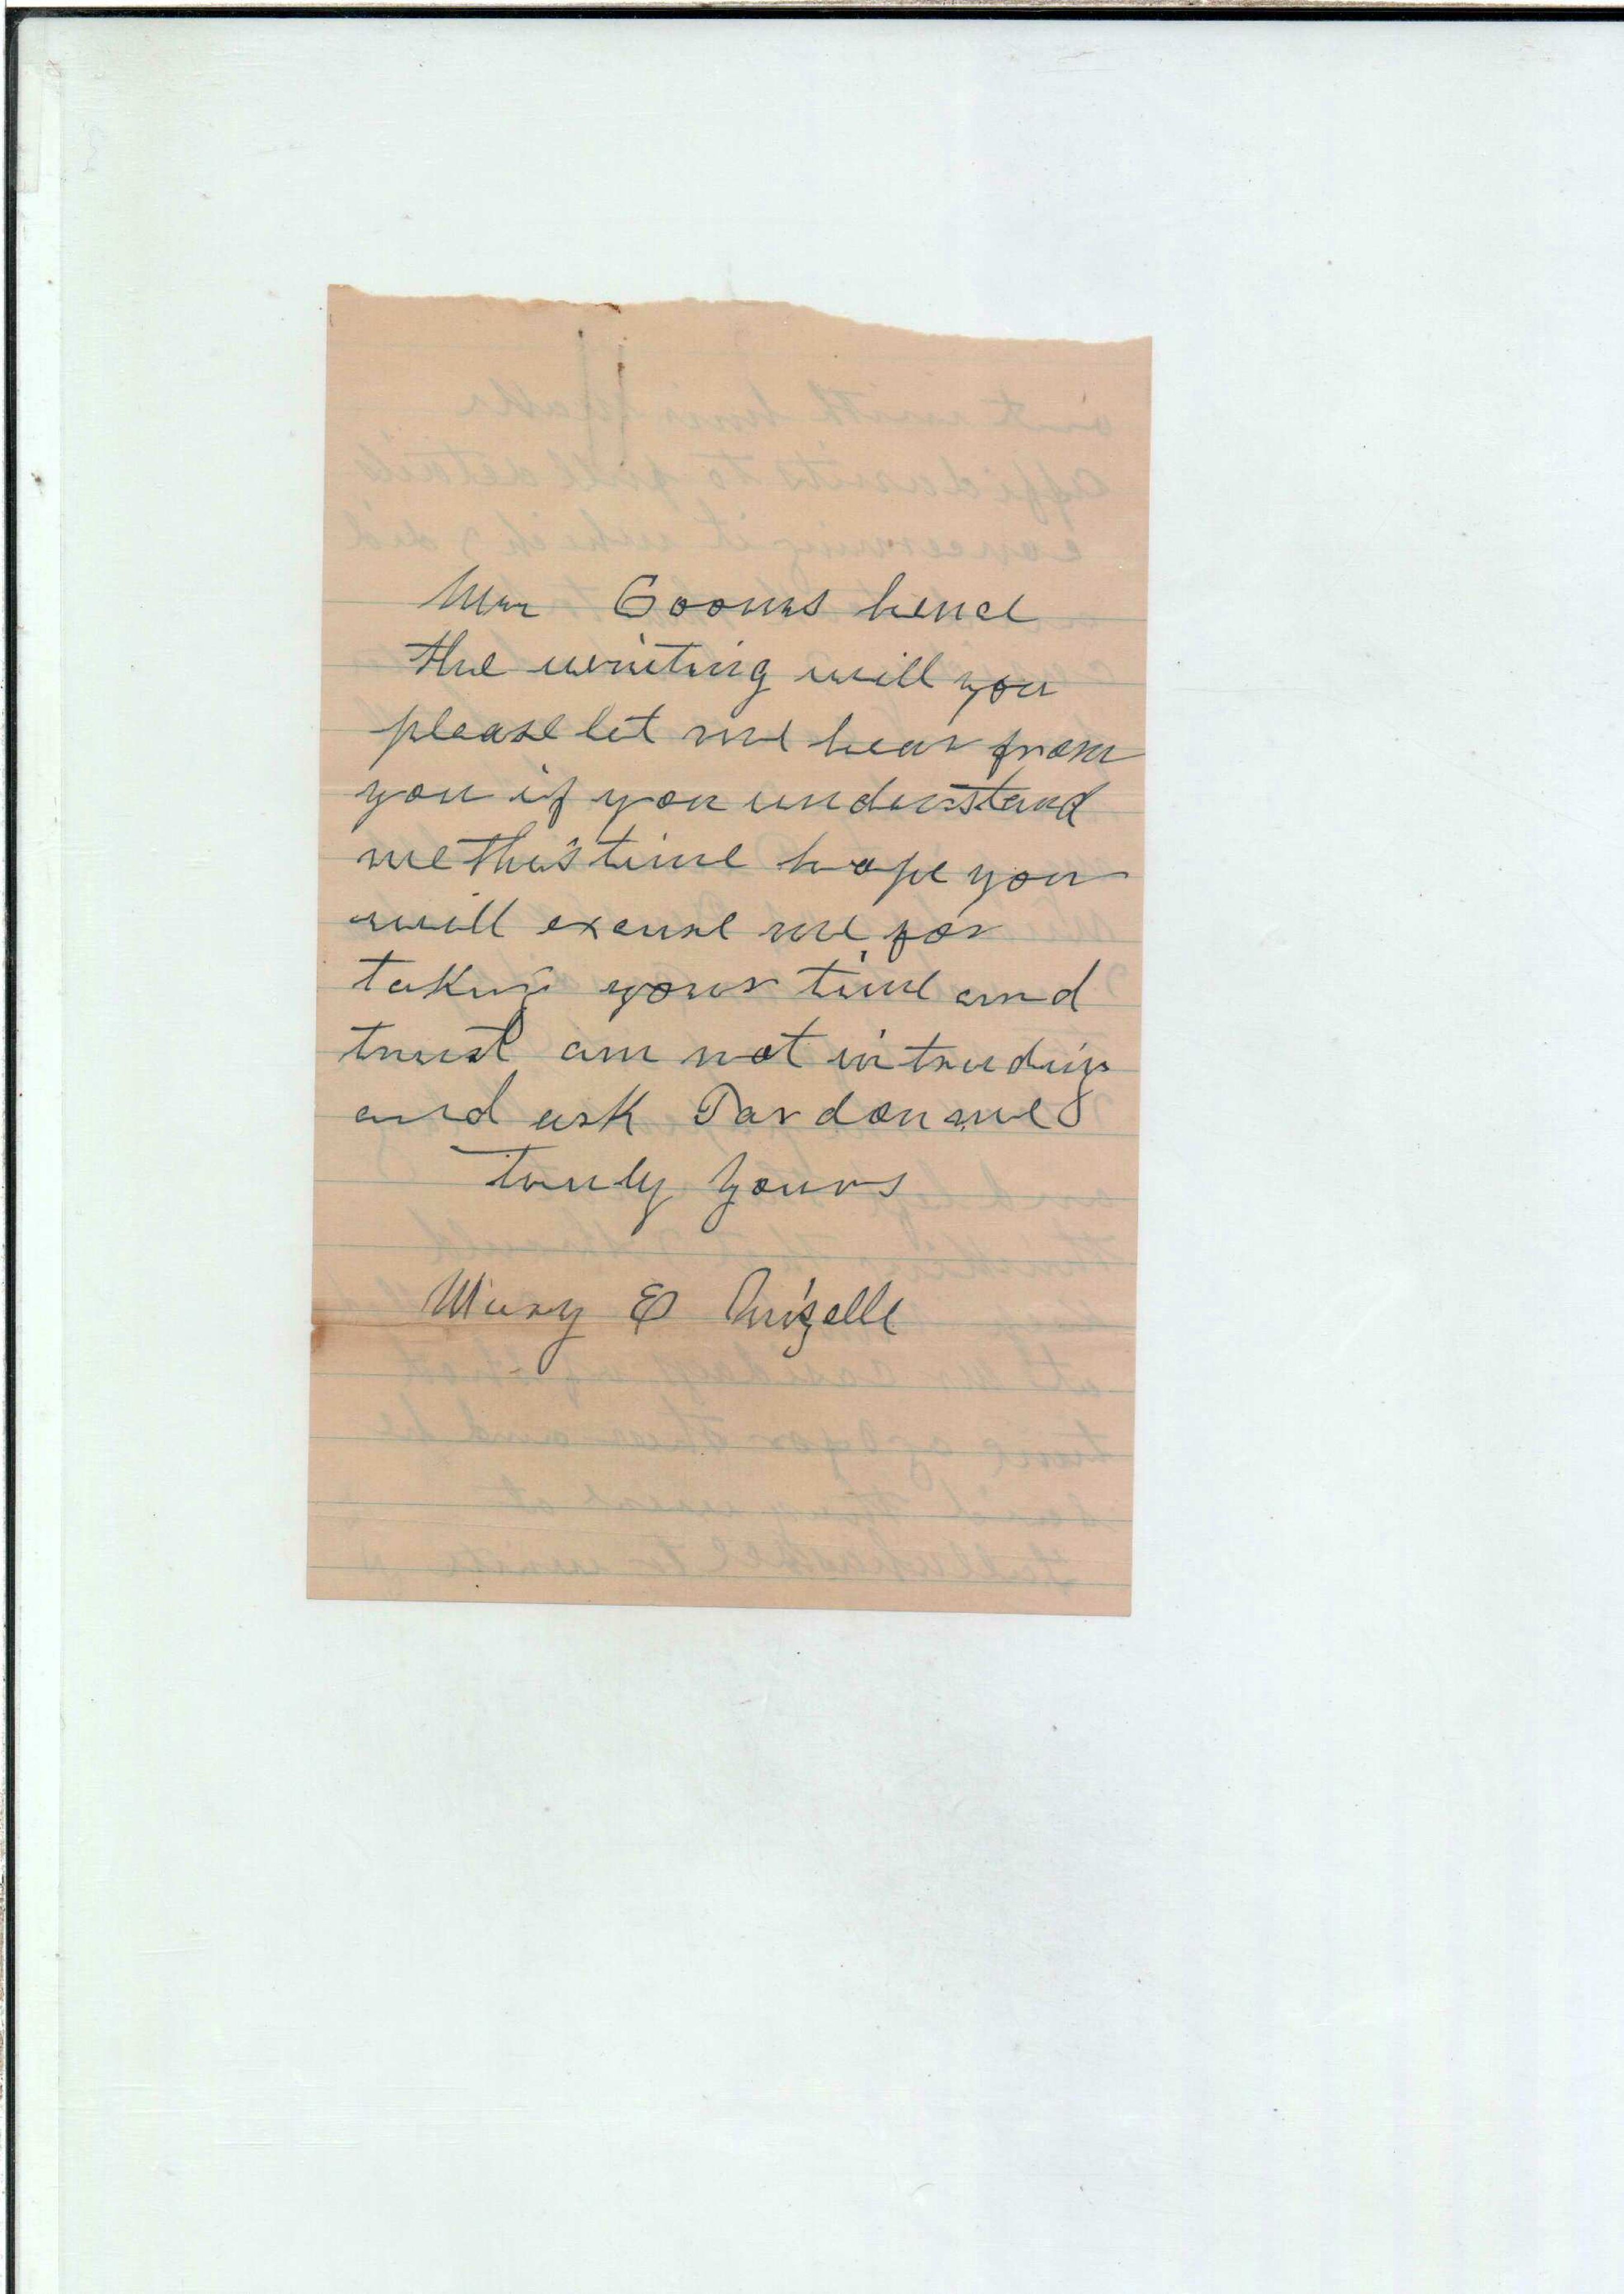 Mr Cooms hence
the writing will you
please let me hear from
you if you understand
me this time hope you
will excuse me for
taking your time and
trust am not intruding
and ask Pardon me
truly yours
Mary E Mizelle